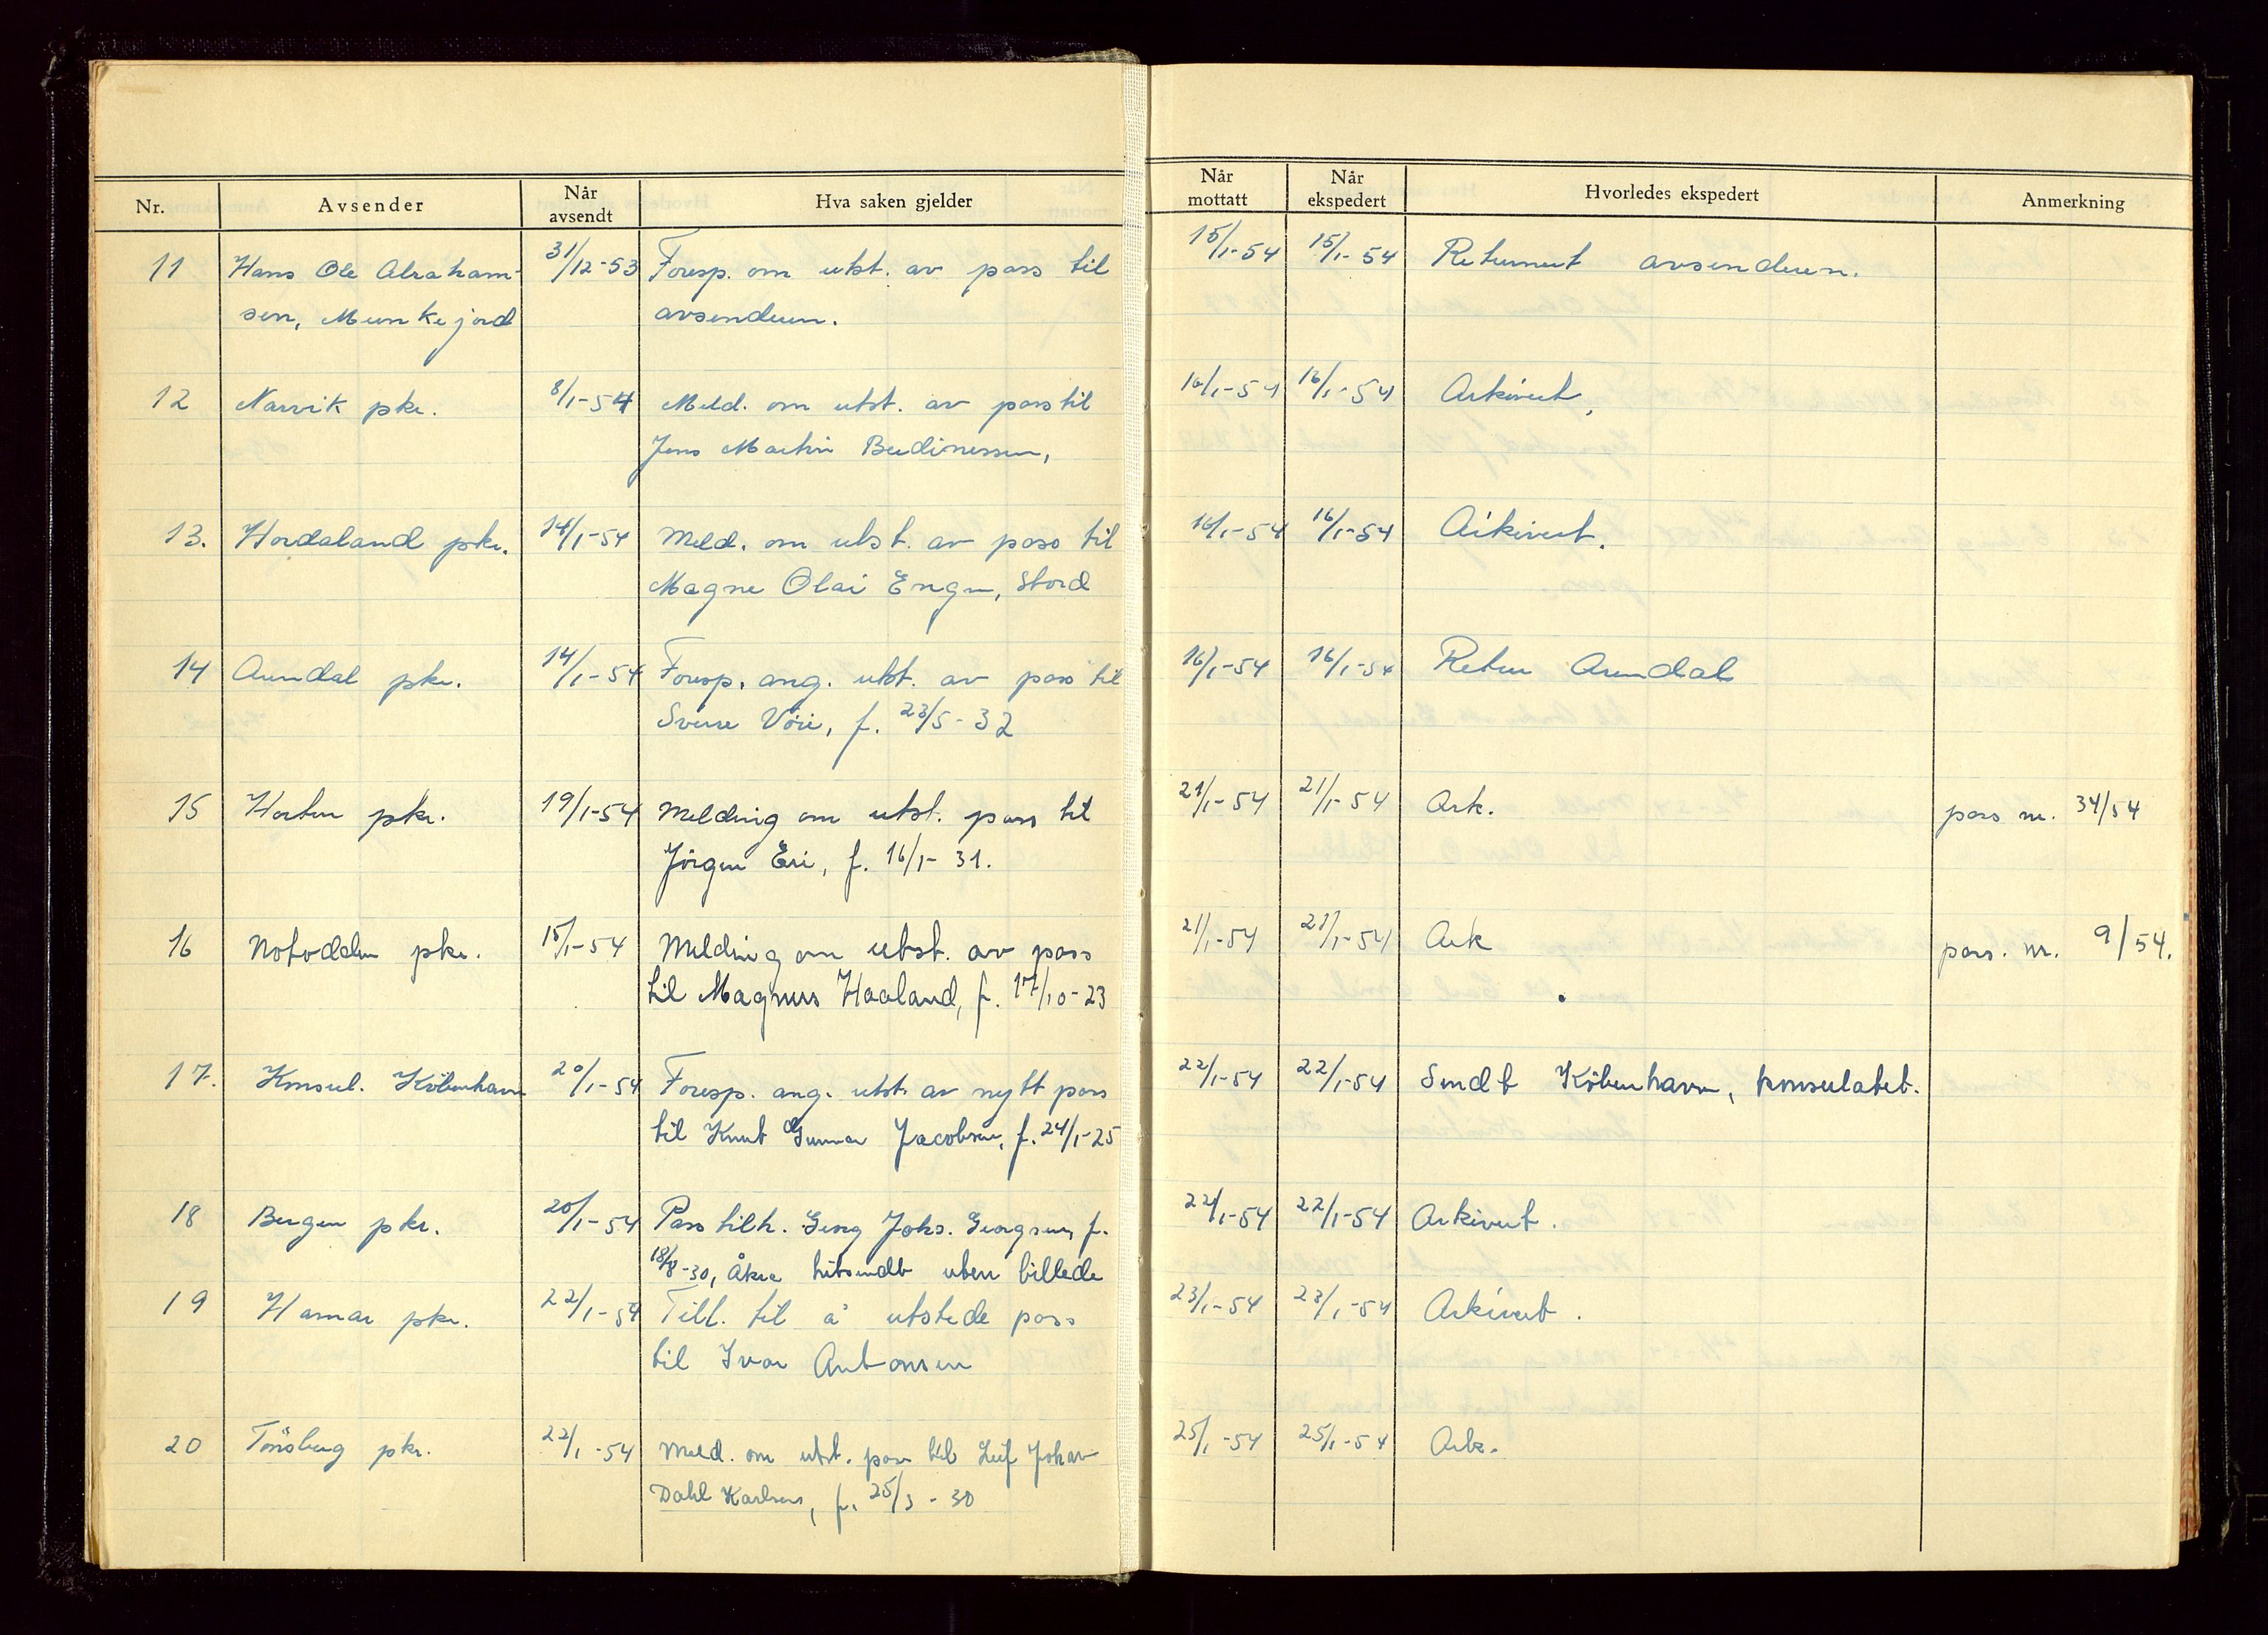 Nr. Avsender Når avsendt Hva saken gjelder Når mottatt Når ekspedert Hvorledes ekspedert Anmerkning
11 Hans Ole Abraham- 31/12-53 Foresp. om utst. av pass til 15/1-54 15/1-54 Returnert avsenderen.
sen, Munkejord avsenderen.
12 Narvik pkr. 8/1-54 Meld. om utst. av pass til 16/1-54 16/1-54 Arkivert.
Jens Martin Bendinessen,
13. Hordaland pkr. 14/1-54 Meld. om utst. av pass til 16/1-54 16/1-54 Arkivert.
Magne Olai Engen, Stord
14 Arendal pkr. 14/1-54 Foresp. ang. utst. av pass til 16/1-54 16/1-54 Retur Arendal
Sverre Vöie, f. 23/5-32
15 Horten pkr. 19/1-54 Melding om utst. pass til 21/1-54 21/1-54 Ark. pass nr. 34/54
Jörgen Eri, f. 16/1-31.
16 Notodden pkr. 15/1-54 Melding om utst. av pass 21/1-54 21/1-54 Ark pass. nr. 9/54.
til Magnus Haaland, f. 17/10-23
17. Konsul. Köbenhavn 20/1-54 Foresp. ang. utst. av nytt pass 22/1-54 22/1-54 Sendt Köbenhavn, konsulatet.
til Knut Gunnar Jacobsen, f. 24/1-25
18 Bergen pkr. 20/1-54 Pass tilh. Georg Johs. Georgsen, f. 22/1-54 22/1-54 Arkivert.
18/8-30, Åkra hitsendt uten billede
19 Hamar pkr. 22/1-54 Till. til å utstede pass 23/1-54 23/1-54 Arkivert.
til Ivar Antonsen
20 Tönsberg pkr. 22/1-54 Meld. om utst. pass til Leif Johan 25/1-54 25/1-54 Ark.
Dahl Karlsen, f. 25/3-30